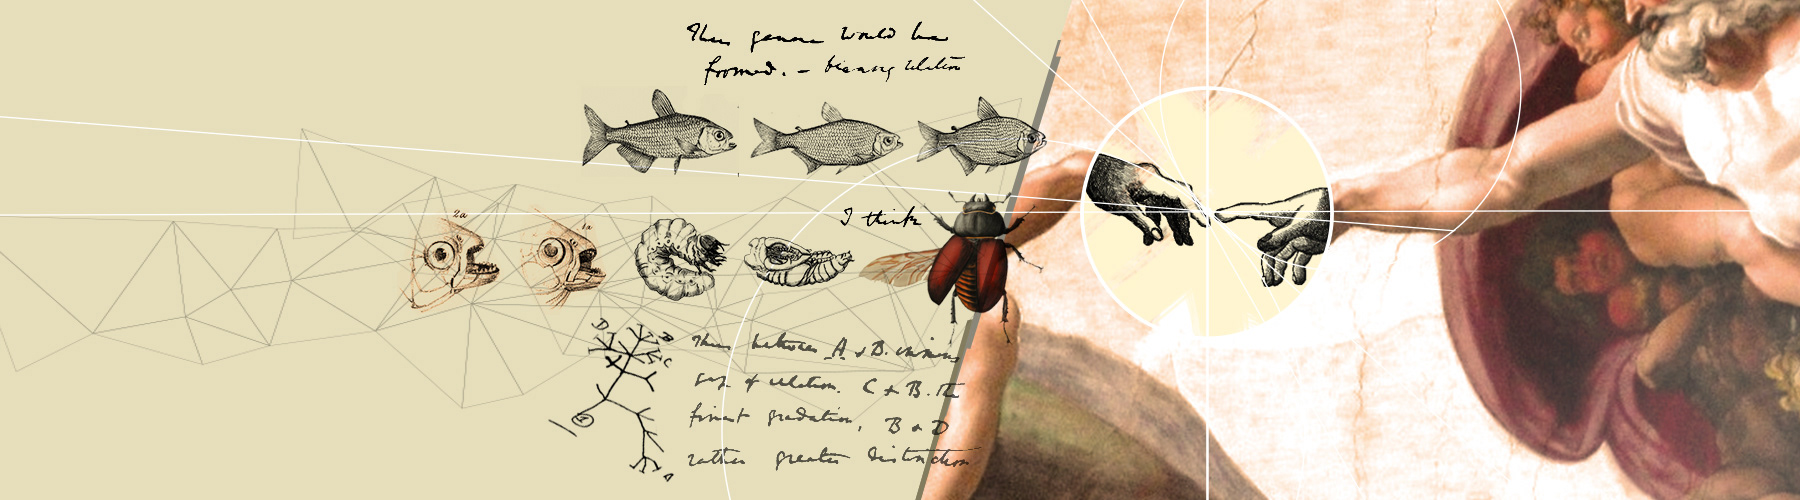 Thus genera would be
formed. — bearing relation
2a
1a
I think
D
B
C
A
Thus between A & B. immense
gap of relation. C & B. the
finest gradation, B & D
rather greater distinction